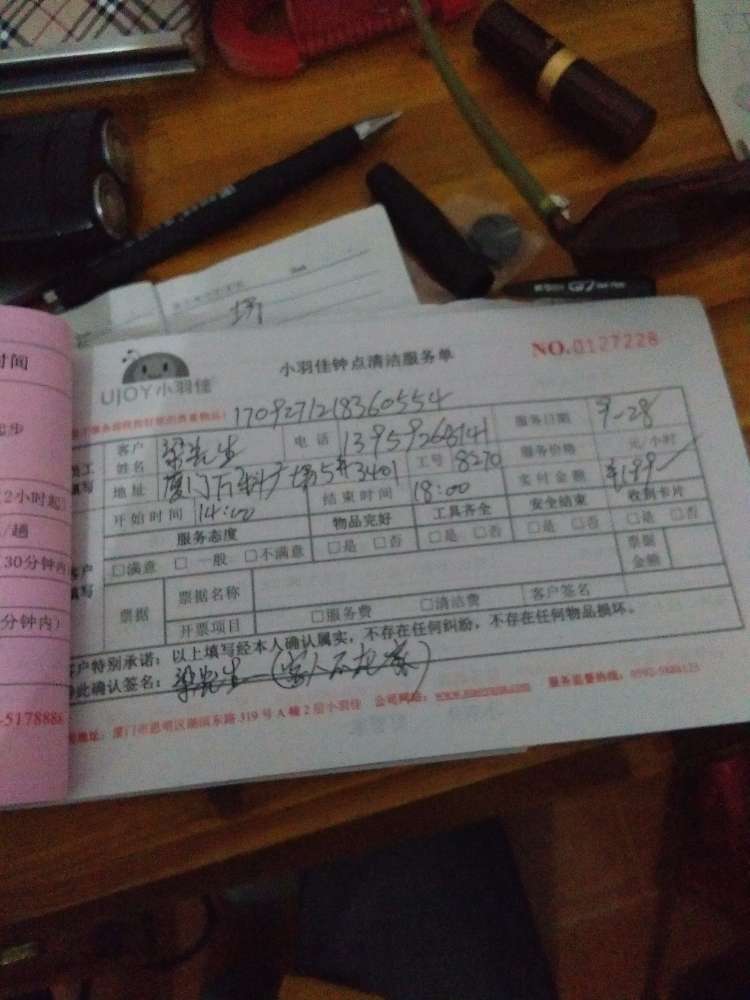 时间
起步
(2小时起)
/趟
30分钟内
分钟内)
-5178888
G7
UJOY小羽佳
小羽佳钟点清洁服务单
NO.0127228
1709271218360554
员工填写
客户姓名
梁先生
电话
13959268141
服务日期
9-28
地址
厦门万科广场5#3401
工号
8270
服务价格
元/小时
开始时间
14:00
结束时间
18:00
实付金额
¥199
服务态度
物品完好
工具齐全
安全结束
收到卡片
客户填写
□满意 □一般 □不满意
□是 □否
□是 □否
□是 □否
□是 □否
票据
票据名称
票据金额
开票项目
□服务费 □清洁费
客户签名
客户特别承诺：以上填写经本人确认属实，不存在任何纠纷，不存在任何物品损坏。
特此确认签名：
梁先生
地址：厦门市思明区湖滨东路319号A幢2层小羽佳 公司网站： 服务监督热线：